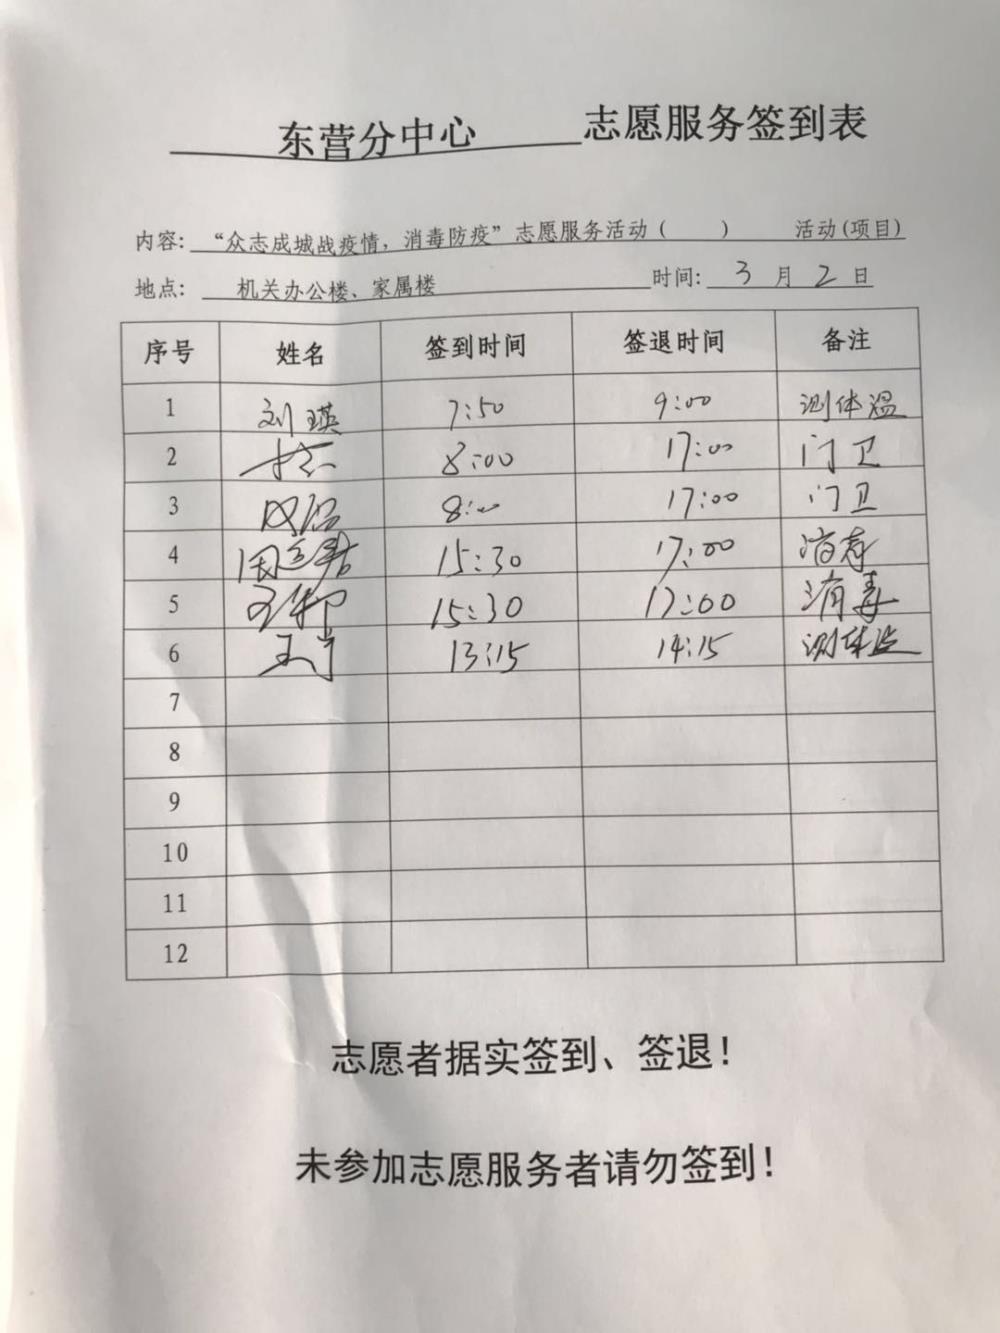 东营分中心 志愿服务签到表
内容: “众志成城战疫情，消毒防疫”志愿服务活动（ ） 活动(项目)
地点: 机关办公楼、家属楼 时间: 3 月 2 日
序号 姓名 签到时间 签退时间 备注
1 刘瑛 7:50 9:00 测体温
2 8:00 17:00 门卫
3 8:00 17:00 门卫
4 15:30 17:00 消毒
5 15:30 17:00 消毒
6 13:15 14:15 测体温
7
8
9
10
11
12
志愿者据实签到、签退！
未参加志愿服务者请勿签到！